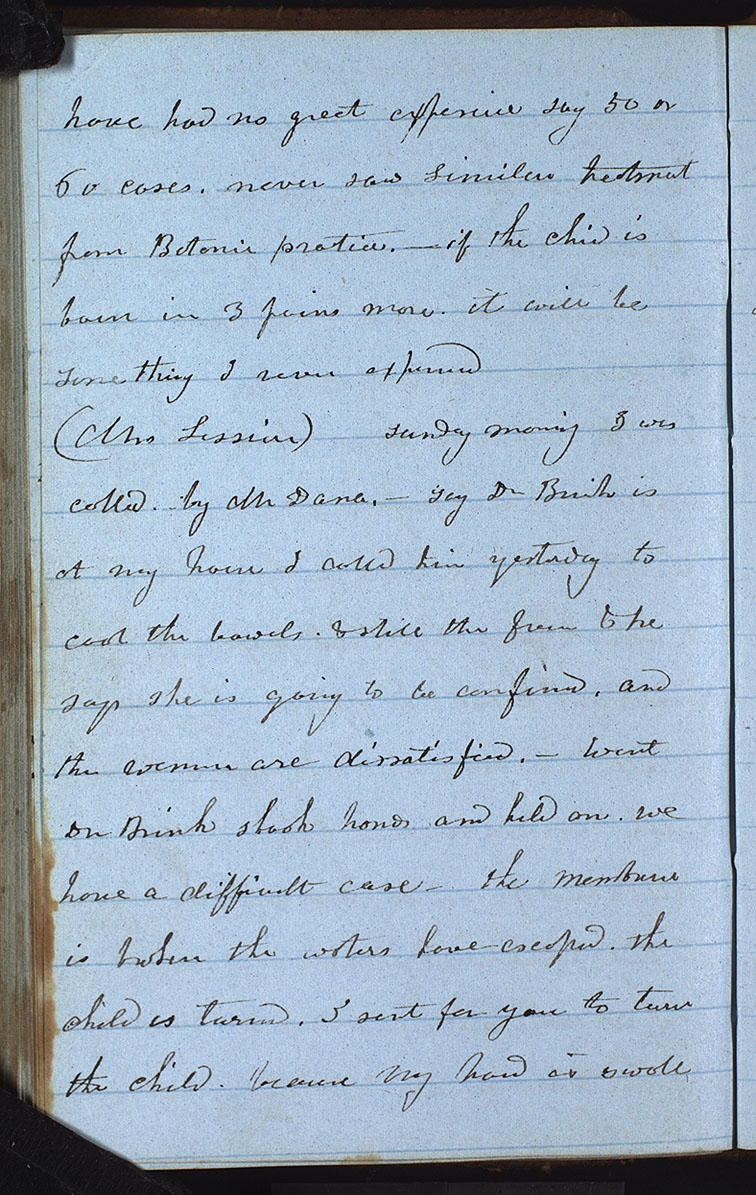 have had no great experience say 50 or
60 cases. never saw similar treatment
from Botanic practice. — if the child is
born in 3 pains more. it will be
something I never expered
(Mrs Sessions) sunday morning I was
called. by Mr Dana. — say Dr Brink is
at my house I called him yesterday to
cool the bowels. & still the fever & he
says she is going to be confined. and
the women are dissatisfied. — Went
Dr Brink shook hands and held on. we
have a difficult case — the membrane
is broken the waters have escaped. the
child is turned. I sent for you to turn
the child. because my hand is swolle